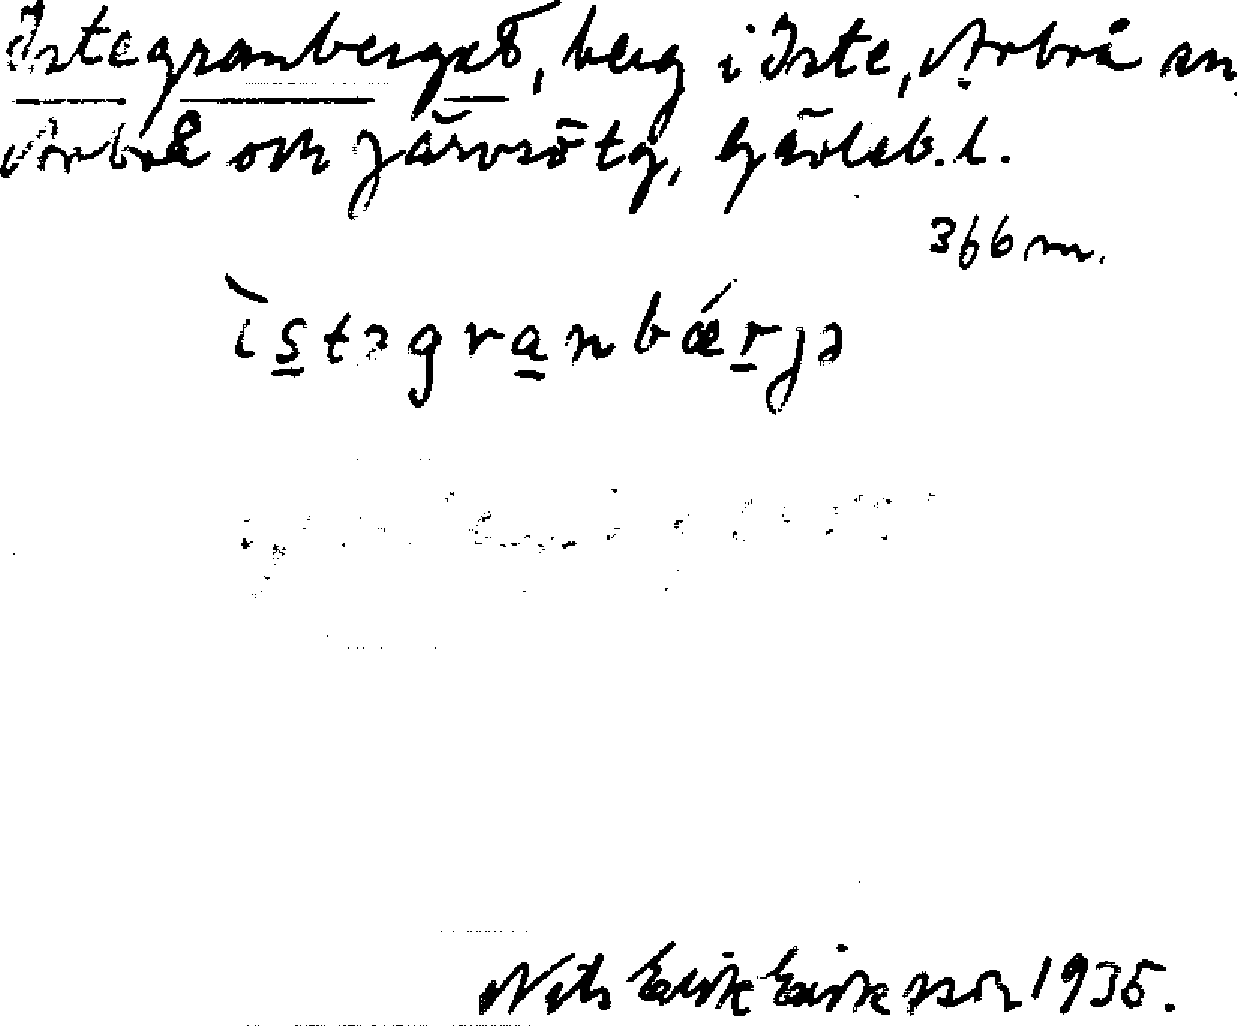 Istegranberget, berg i Iste, Arbrå sn
Arbrå och Järvsö tg, Gävleb. l.
366 m.
ìstəgranbǽrjə
Nils Erik Eriksson 1935.